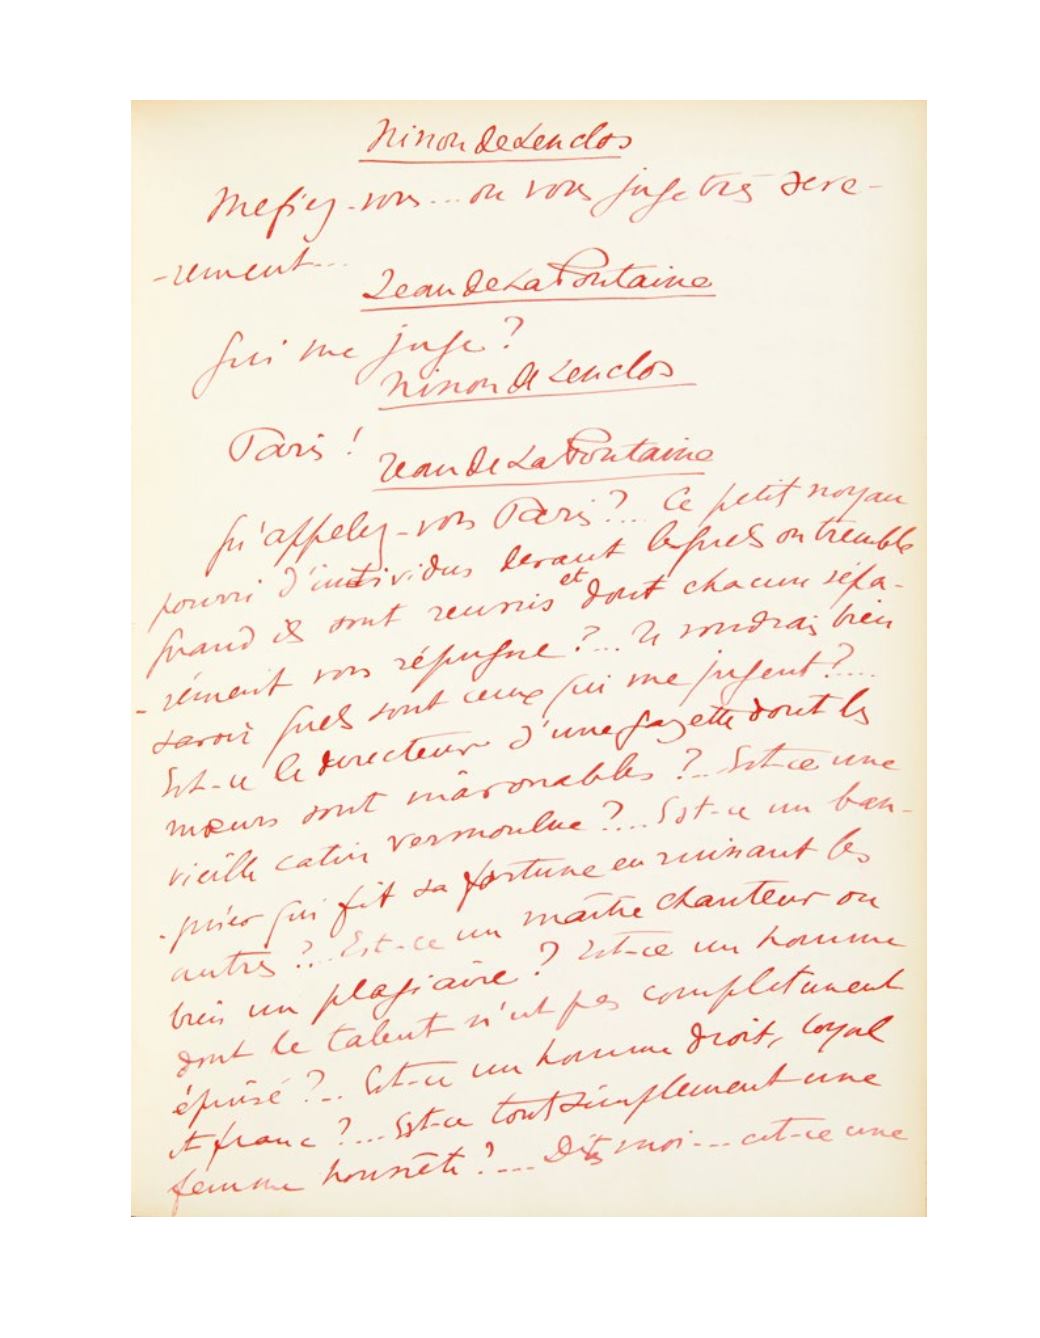 Ninon de Lenclos
Méfiez-vous... on vous juge très sévè-
-rement...
Jean de La Fontaine
Qui me juge ?
Ninon de Lenclos
Paris !
Jean de La Fontaine
Qu'appelez-vous Paris ?... Ce petit noyau
pourri d'individus devant lesquels on tremble
quand ils sont réunis et dont chacun sépa-
-rément vous répugne ?... Je voudrais bien
savoir quels sont ceux qui me jugent ?....
Est-ce le directeur d'une gazette dont les
mœurs sont inavouables ?... Est-ce une
vieille catin vermoulue ?.... Est-ce un ban-
-quier qui fit sa fortune en ruinant les
autres ?... Est-ce un maître chanteur ou
bien un plagiaire ? Est-ce un homme
dont le talent n'est pas complètement
épuisé ?... Est-ce un homme droit, loyal
et franc ?... Est-ce tout simplement une
femme honnête ?.... Dites moi... est-ce une